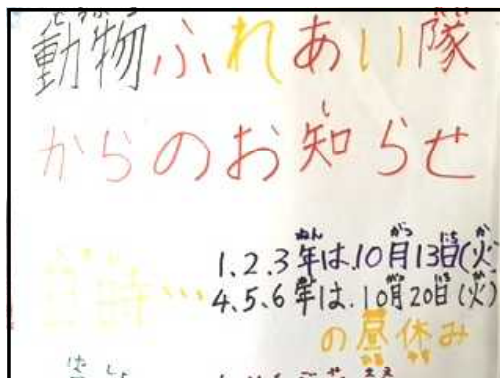 動物ふれあい隊
からのお知らせ
日時… 1、2、3年は、10月13日(火)
4、5、6年は、10月20日(火)
の昼休み